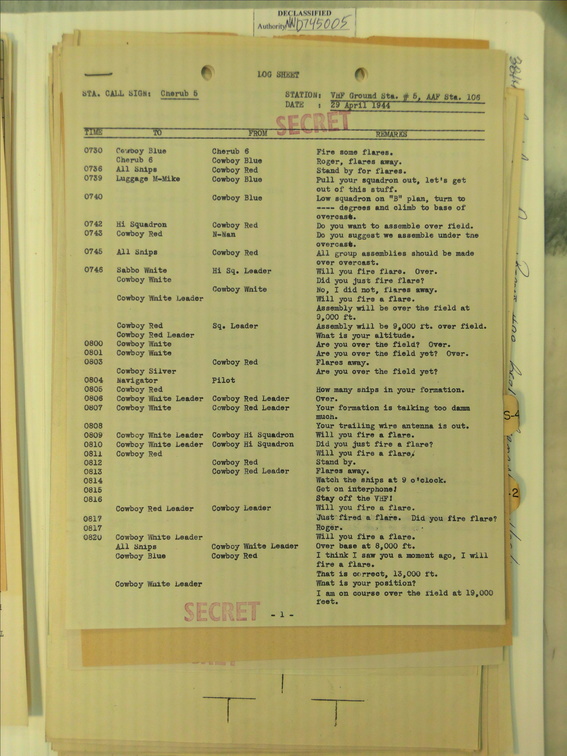 DECLASSIFIED
Authority NND745005
LOG SHEET
STA. CALL SIGN: Cherub 5 STATION: VHF Ground Sta. # 5, AAF Sta. 106
DATE : 29 April 1944
SECRET
TIME TO FROM REMARKS
0730 Cowboy Blue Cherub 6 Fire some flares.
Cherub 6 Cowboy Blue Roger, flares away.
0736 All Ships Cowboy Red Stand by for flares.
0739 Luggage M-Mike Cowboy Blue Pull your squadron out, let's get
out of this stuff.
0740 Cowboy Blue Low squadron on "B" plan, turn to
---- degrees and climb to base of
overcast.
0742 Hi Squadron Cowboy Red Do you want to assemble over field.
0743 Cowboy Red N-Nan Do you suggest we assemble under the
overcast.
0745 All Ships Cowboy Red All group assemblies should be made
over overcast.
0746 Sabbo White Hi Sq. Leader Will you fire flare. Over.
Cowboy White Did you just fire flare?
Cowboy White No, I did not, flares away.
Cowboy White Leader Will you fire a flare.
Assembly will be over the field at
9,000 ft.
Cowboy Red Sq. Leader Assembly will be 9,000 ft. over field.
Cowboy Red Leader What is your altitude.
0800 Cowboy White Are you over the field? Over.
0801 Cowboy White Are you over the field yet? Over.
0803 Cowboy Red Flares away.
Cowboy Silver Are you over the field yet?
0804 Navigator Pilot
0805 Cowboy Red How many ships in your formation.
0806 Cowboy White Leader Cowboy Red Leader Over.
0807 Cowboy White Cowboy Red Leader Your formation is talking too damn
much.
0808 Your trailing wire antenna is out.
0809 Cowboy White Leader Cowboy Hi Squadron Will you fire a flare.
0810 Cowboy White Leader Cowboy Hi Squadron Did you just fire a flare?
0811 Cowboy Red Will you fire a flare.
0812 Cowboy Red Stand by.
0813 Cowboy Red Leader Flares away.
0814 Watch the ships at 9 o'clock.
0815 Get on interphone!
0816 Stay off the VHF!
Cowboy Red Leader Cowboy Leader Will you fire a flare.
0817 Just fired a flare. Did you fire flare?
0817 Roger.
0820 Cowboy White Leader Will you fire a flare.
All Ships Cowboy White Leader Over base at 8,000 ft.
Cowboy Blue Cowboy Red I think I saw you a moment ago, I will
fire a flare.
That is correct, 13,000 ft.
Cowboy White Leader What is your position?
I am on course over the field at 19,000
feet.
SECRET
- 1 -
S-4
2